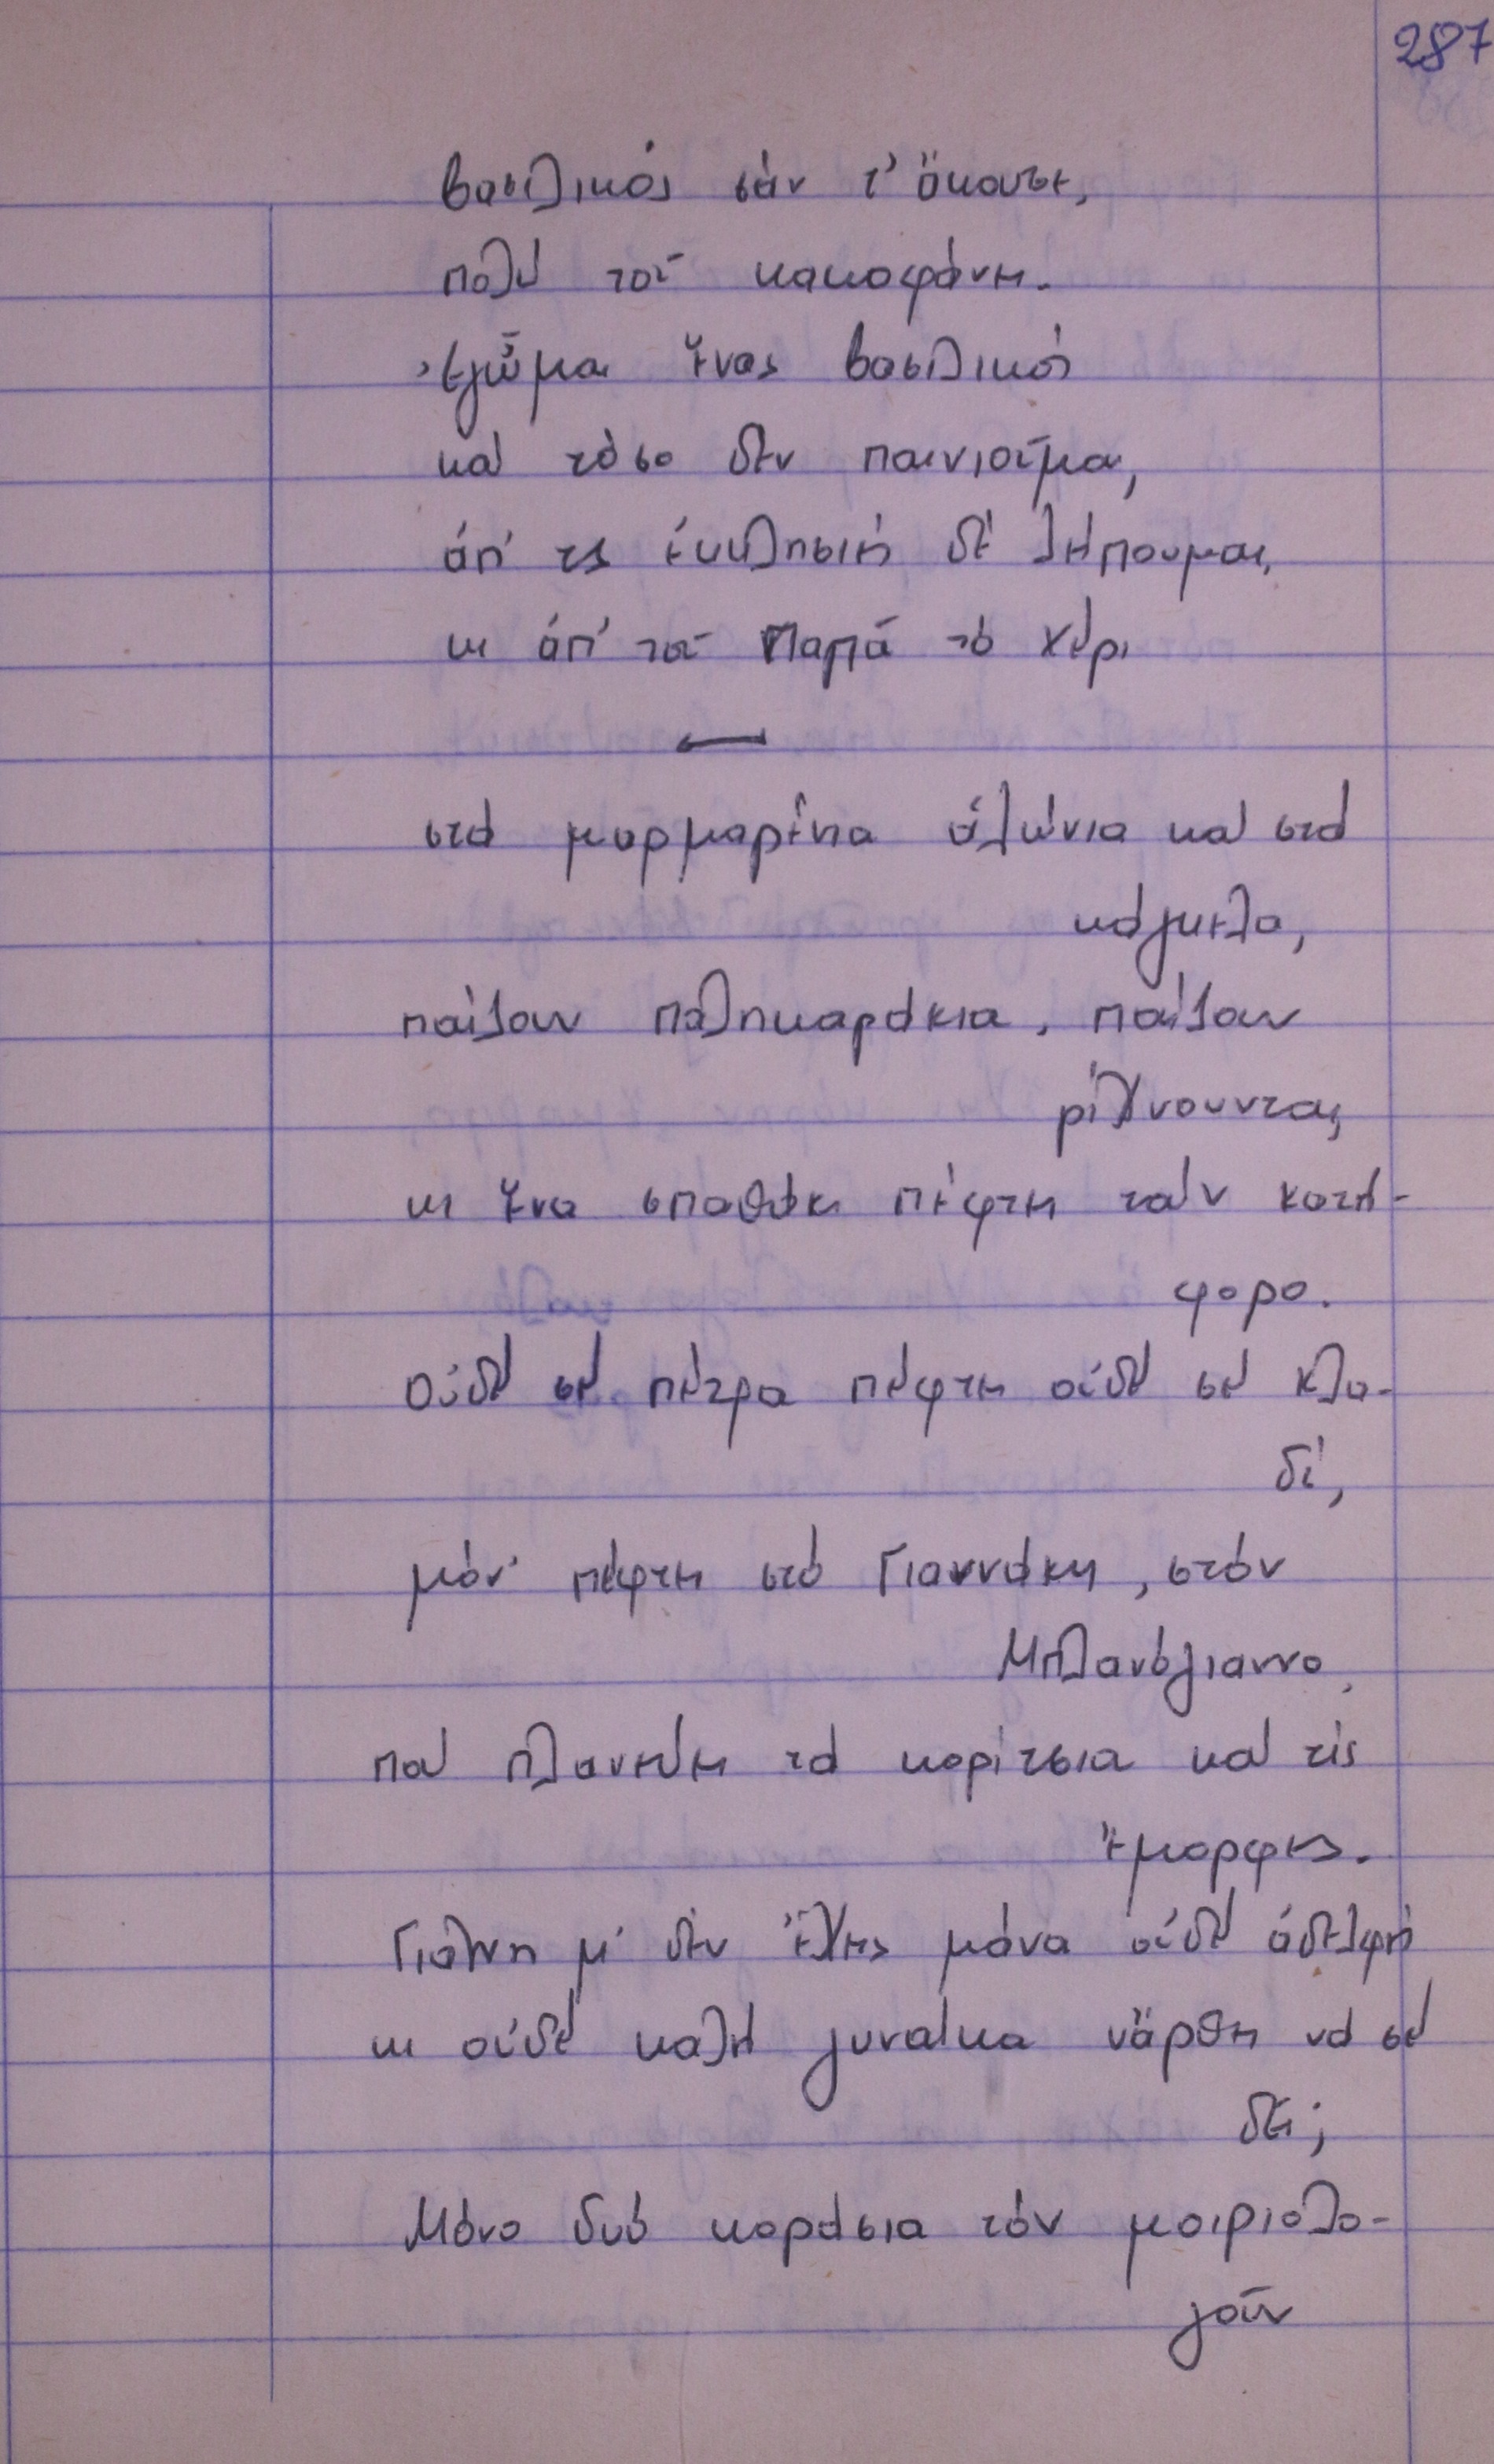 287
βασιλικός σάν τ' ἄκουσε,
πολύ τοῦ κακοφάνη.
Ἐγὦμαι ἕνας βασιλικός
καί τόσο δέν παινιοῦμαι,
ἀπ' τς ἐκκλησιές δέ λείπουμαι,
κι ἀπ' τοῦ Παπᾶ τό χέρι
στά μαρμαρένια ἁλώνια καί στά
κάγκελα,
παίζουν παληκαράκια, παίζουν
ρίχνουνται,
κι ἕνα σπαθάκι πέφτει τόν κατή-
φορο.
Οὐδέ σέ πέτρα πέφτει οὐδέ σέ κλα-
δί,
μόν' πέφτει στό Γιαννάκη, στόν
Μπλανόγιαννο,
πού πλανεύει τά κορίτσια καί τίς
ἔμορφες.
Γιάννη μ' δέν ἔχεις μάνα οὐδέ ἀδελφή
κι οὐδέ καλή γυναίκα νἄρθει νά σέ
δεῖ;
Μόνο δυό κοράσια τόν μοιριολο-
γοῦν